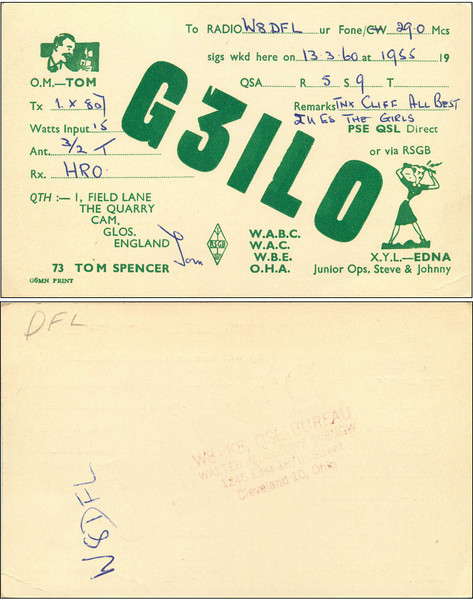 To RADIO W8DFL ur Fone/CW 29.0 Mcs
sigs wkd here on 13.3.60 at 1955 19
O.M.—TOM
QSA R 5 S 9 T
Tx 1 X 807
Remarks TNX CLIFF ALL BEST
Watts Input 15
ES THE GIRLS
PSE QSL Direct
Ant. 3/2
or via RSGB
Rx. HRO
G3ILO
QTH :— 1, FIELD LANE
THE QUARRY
CAM,
GLOS.
ENGLAND
Tom
RSGB
W.A.B.C.
W.A.C.
W.B.E.
O.H.A.
X.Y.L.—EDNA
Junior Ops. Steve & Johnny
73 TOM SPENCER
G6MN PRINT
DFL
W8-K8 QSL BUREAU
WALTER
1245 East Street
Cleveland 10, Ohio
W8DFL